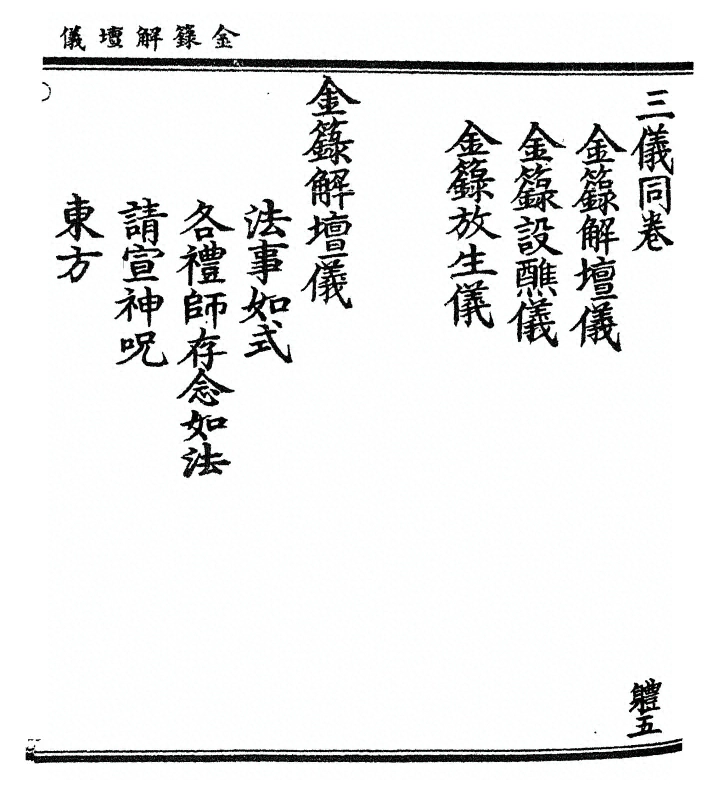 金籙解壇儀
三儀同卷
軆五
金籙解壇儀
金籙設醮儀
金籙放生儀
金籙解壇儀
法事如式
各禮師存念如法
請宣神呪
東方